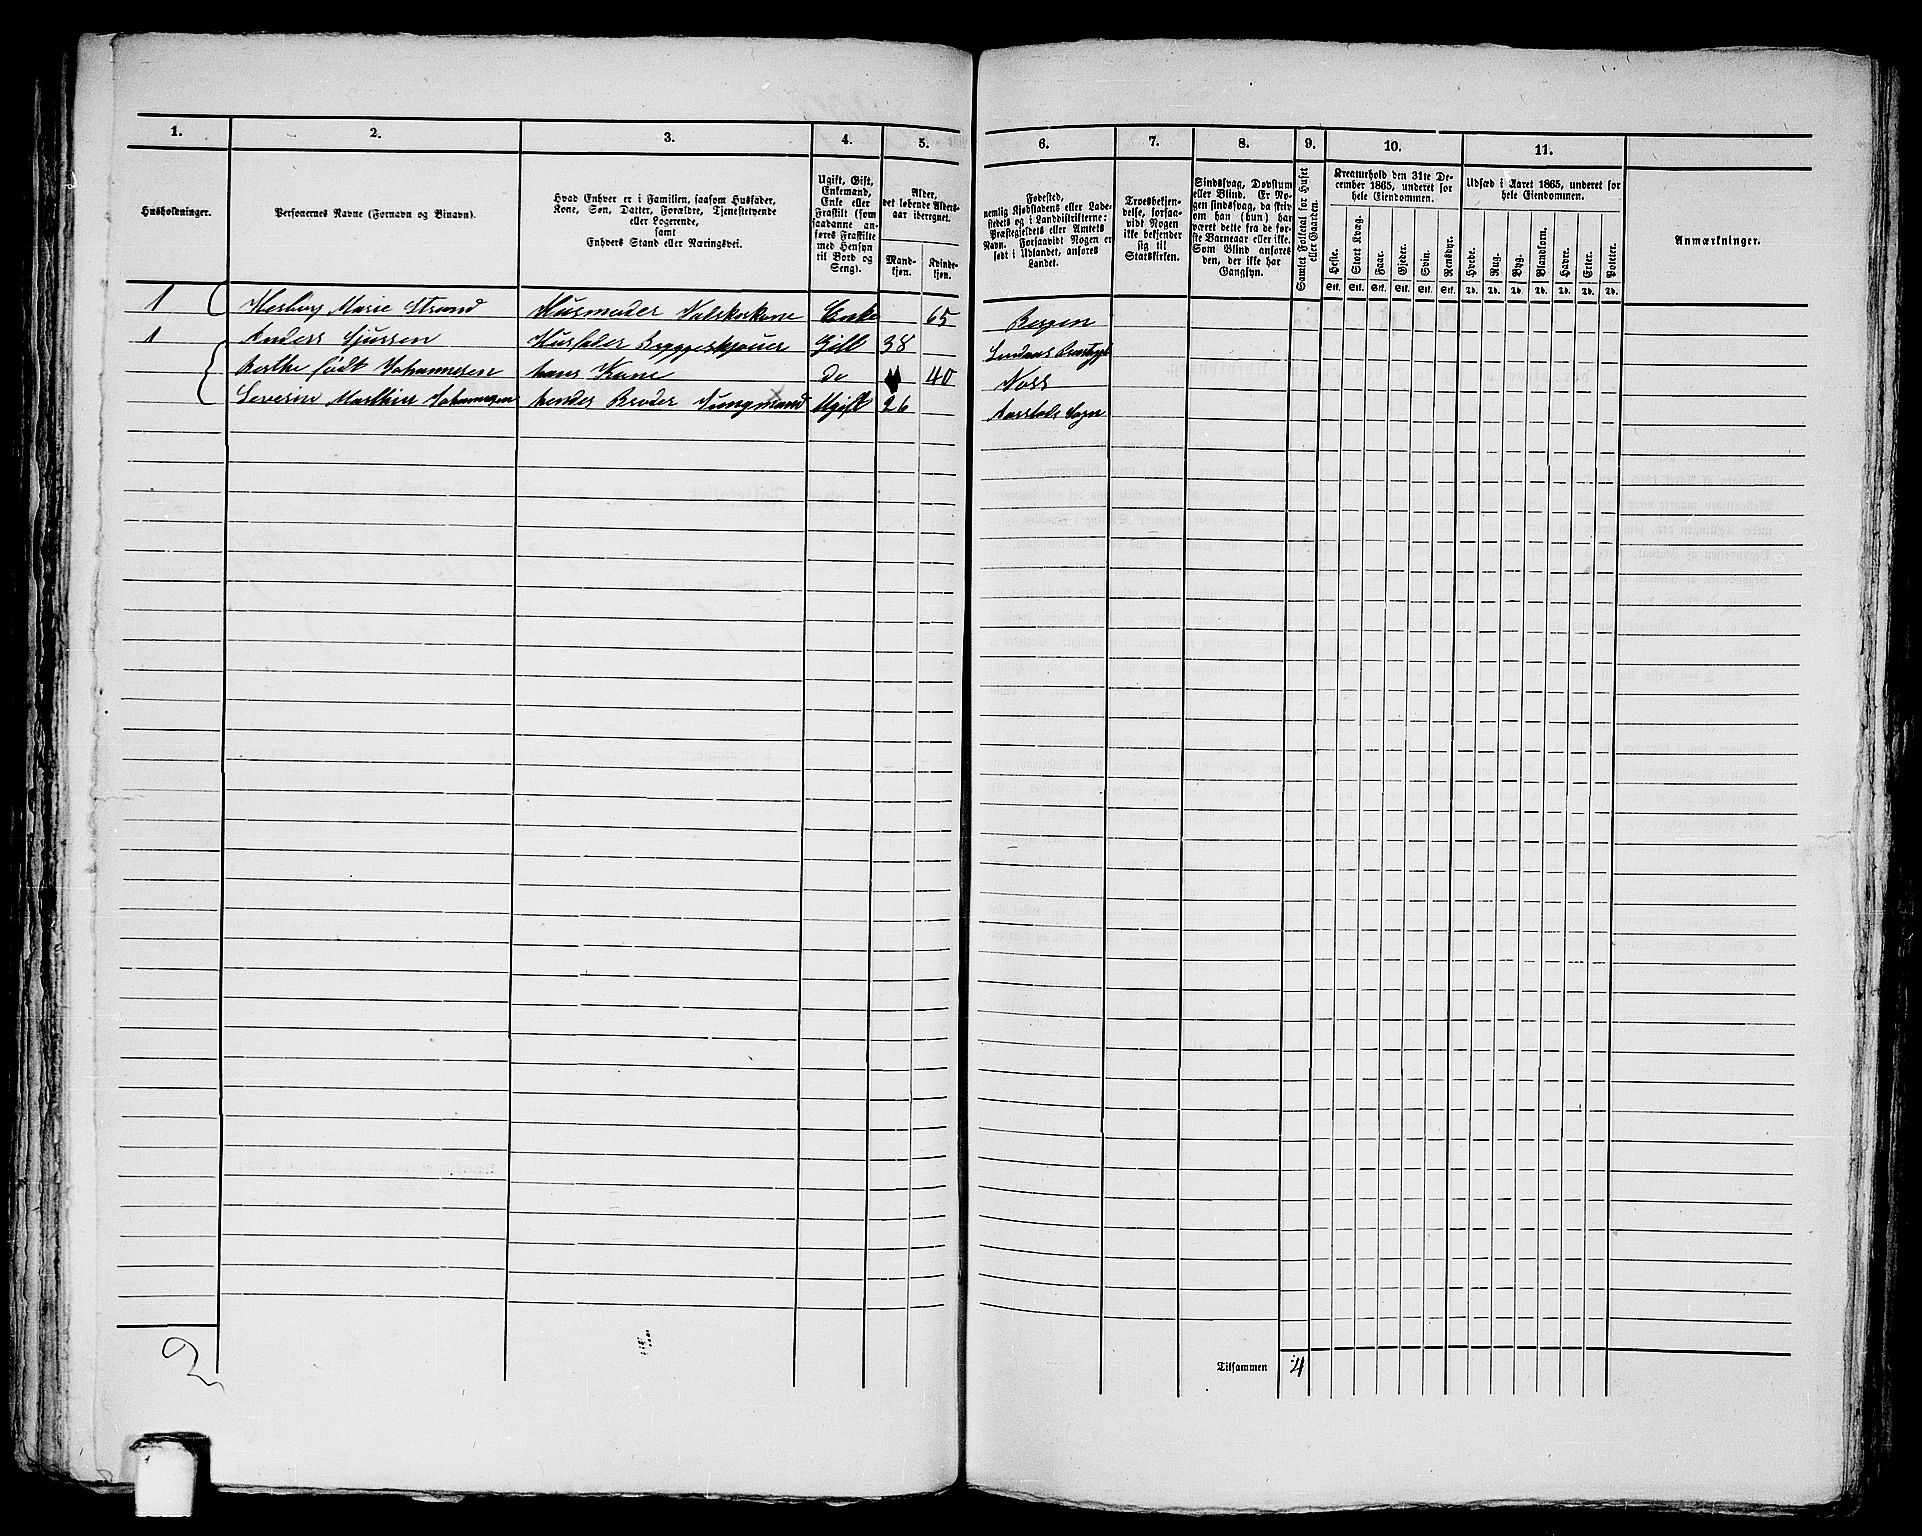 1. 2. 3. 4. 5. 6. 7. 8. 9. 10. 11.
Husholdninger.
Personernes Navne (Fornavn og Binavn).
Hvad Enhver er i Familien, saasom Husfader,
Kone, Søn, Datter, Forældre, Tjenestetyende
eller Logerende,
samt
Enhvers Stand eller Næringsvei.
Ugift, Gift,
Enkemand,
Enke eller
Fraskilt (som
saadanne an-
føres Fraskilte
med Hensyn
til Bord og
Seng).
Alder,
det løbende Alders-
aar iberegnet.
Mand-
kjøn.
Kvinde-
kjøn.
Fødested,
nemlig Kjøbstadens eller Lade-
stedets og i Landdistrikterne:
Præstegjeldets eller Amtets
Navn. Forsaavidt Nogen er
født i Udlandet, anføres
Landet.
Troesbekjen-
delse, forsaa-
vidt Nogen
ikke bekjender
sig til
Statskirken.
Sindssvag, Døvstum
eller Blind. Er No-
gen sindssvag, da skriv
om han (hun) har
været dette fra de før-
ste Barneaar eller ikke.
Som Blind anføres
den, der ikke har
Gangsyn.
Samlet Folketal for Huset
eller Gaarden.
Kreaturhold den 31te De-
cember 1865, underet for
hele Eiendommen.
Heste. Stort Kvæg. Faar. Gjeder. Svin. Rensdyr.
Stk. Stk. Stk. Stk. Stk. Stk.
Udsæd i Aaret 1865, underet for
hele Eiendommen.
Hvede. Rug. Byg. Blandkorn. Havre. Erter. Poteter.
Td. Td. Td. Td. Td. Td. Td.
Anmærkninger.
1 Marie Strand Husmoder Enke 65 Bergen
1 Anders Husfader Gift 38
Berthe født Johannesen hans Kone do 40 Voss
Severin Marthin Johannesen hendes Broder Jungmand Ugift 26 Aarstads Sogn
2
Tilsammen 4